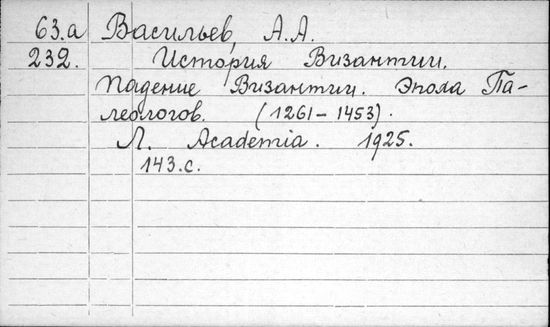 63.а Васильев, А.А.
232. История Византии.
Падение Византии. Эпоха Па-
леологов. (1261-1453).
Л. Academia. 1925.
143.с.